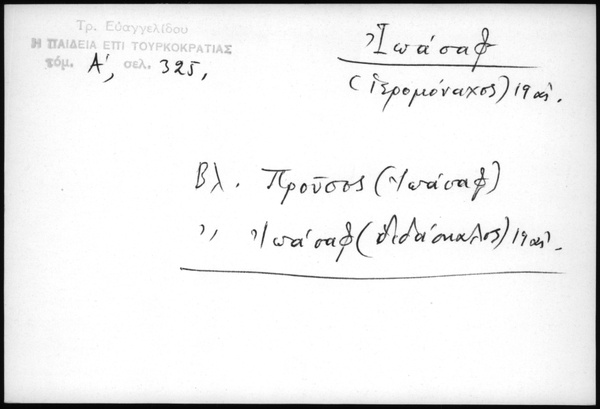 Τρ. Εὐαγγελίδου
Η ΠΑΙΔΕΙΑ ΕΠΙ ΤΟΥΡΚΟΚΡΑΤΙΑΣ
τόμ. Α΄, σελ. 325.
Ἰωάσαφ
(ἱερομόναχος) 19 αἰ.
Βλ. Προῦσος (Ἰωάσαφ)
,, Ἰωάσαφ (διδάσκαλος) 19 αἰ.